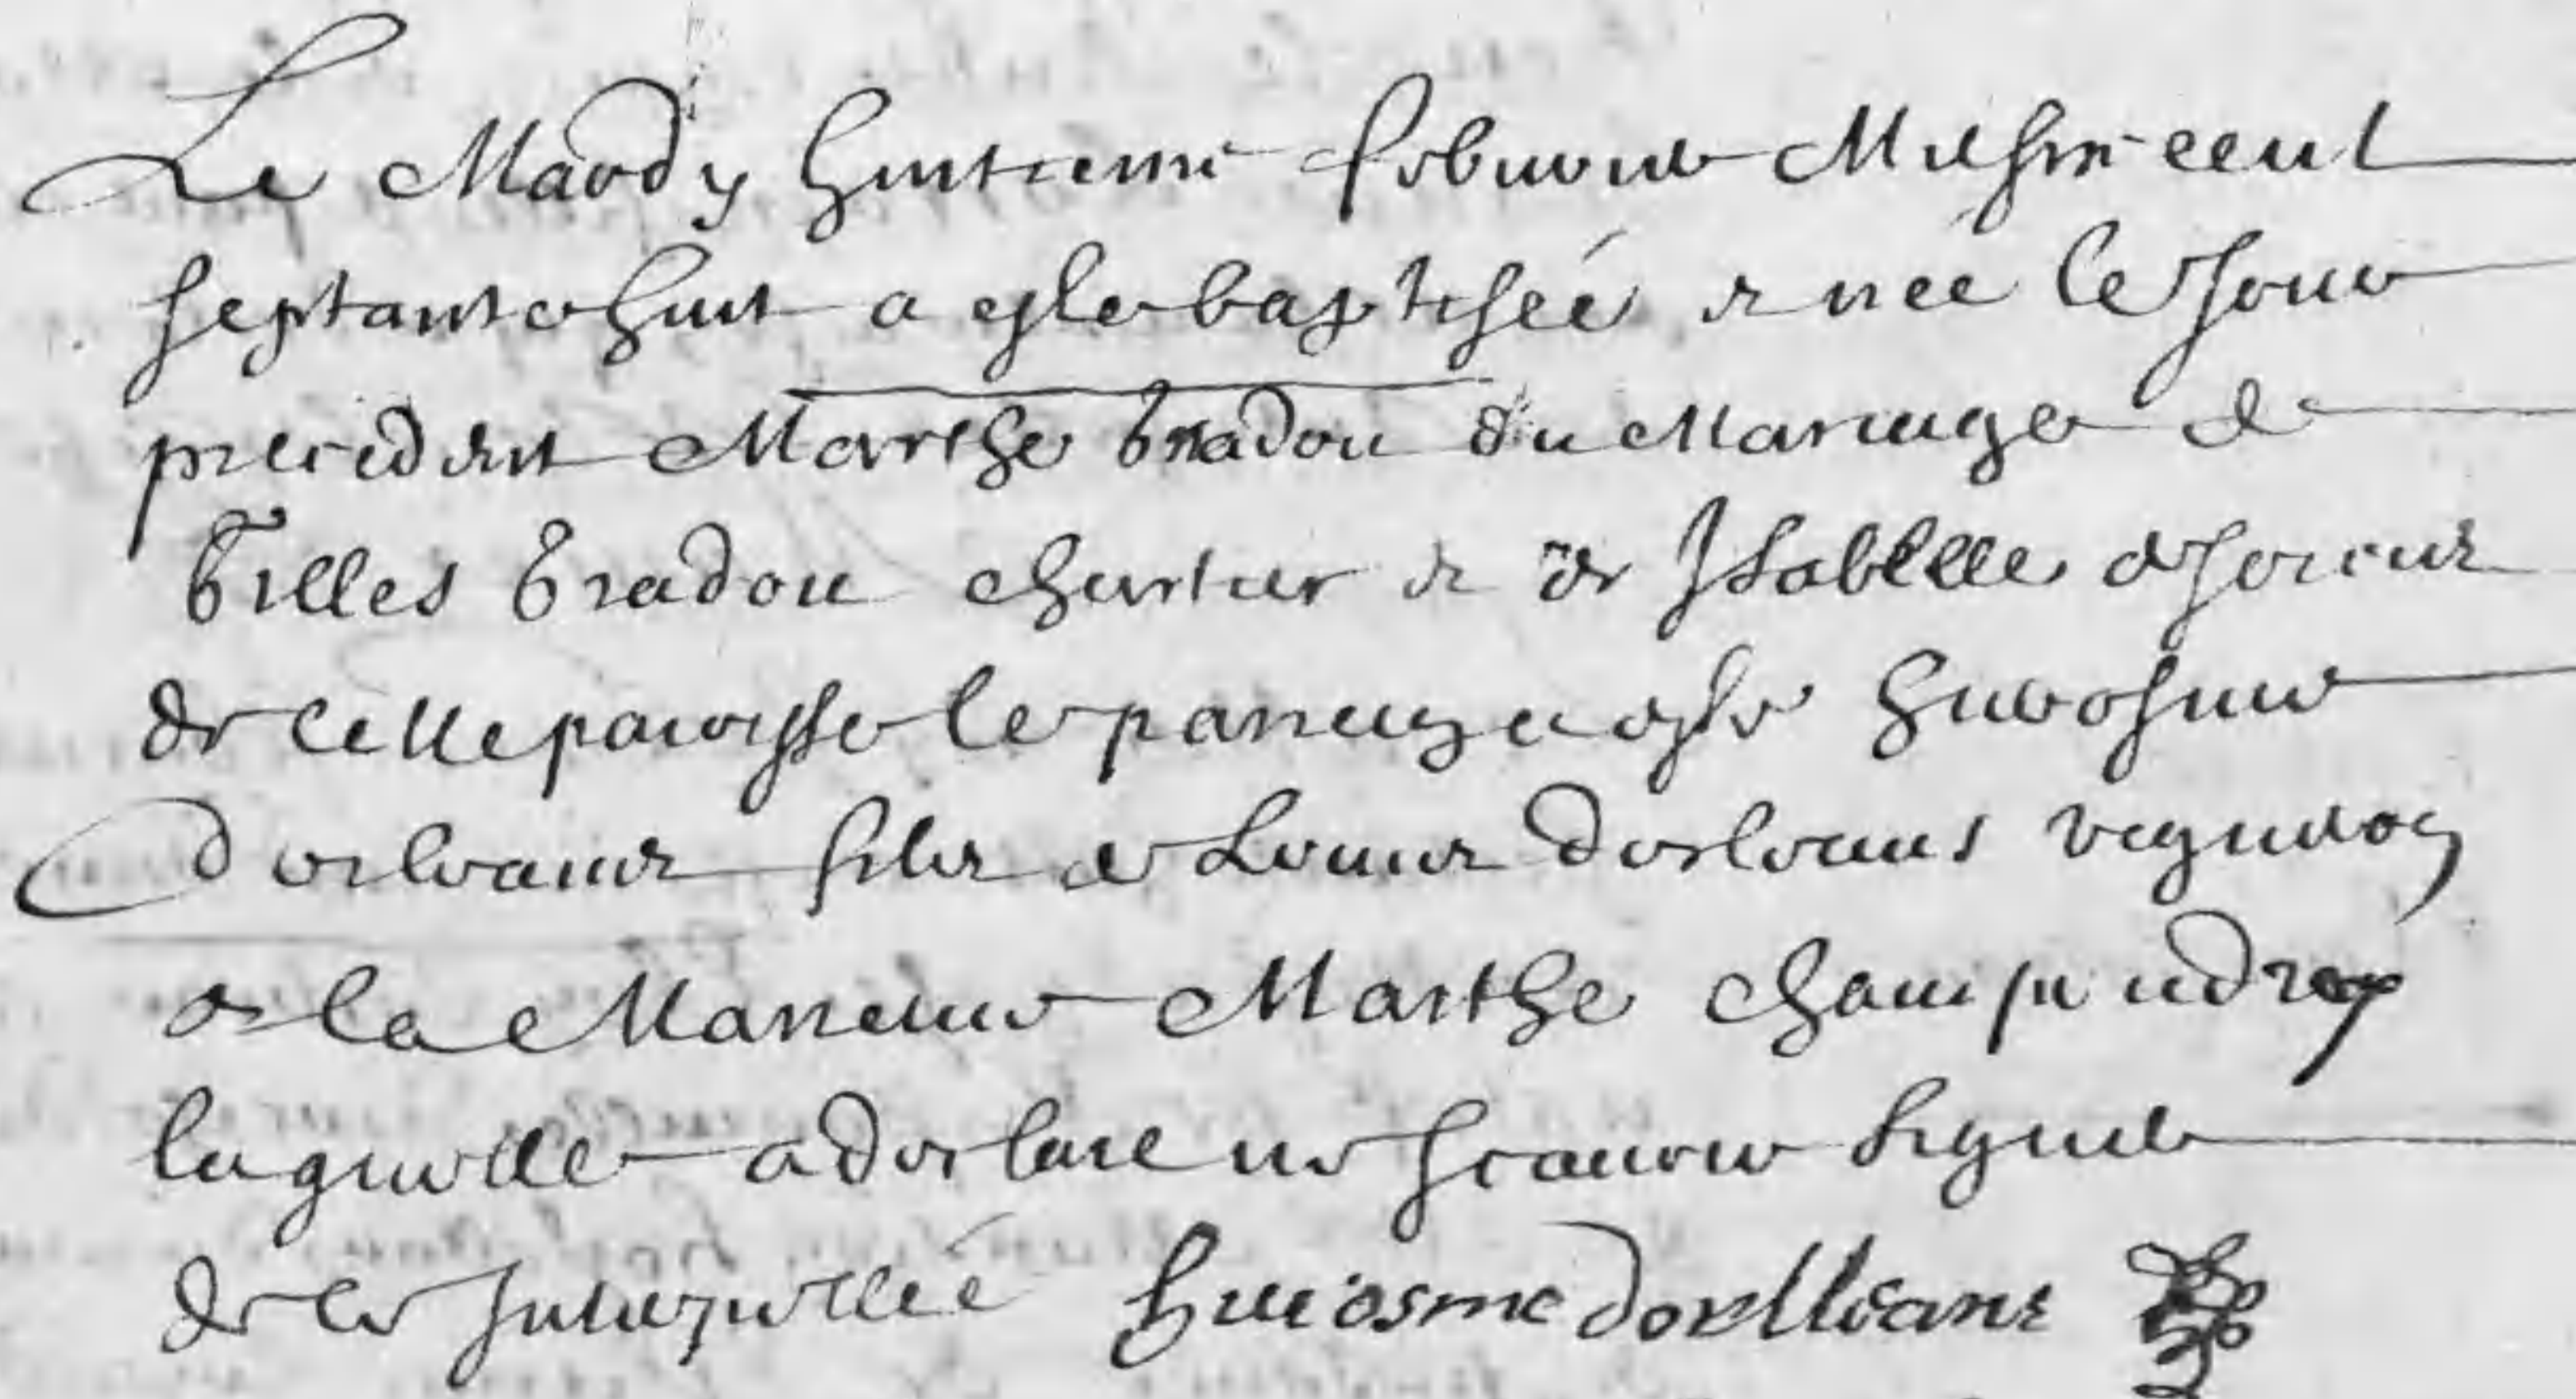 Le Mardy huitieme febvrier Mil six cent
septante huit a este baptisée et née le Jour
precedent Marthe bradou du Mariage de
Gilles bradou chartier et de Isabelle
de cette paroisse le parein a este hierosme
Dorleans fils de Louis Dorleans
et la Mareine Marthe
laquelle a declaré ne scavoir signer
de ce interpellée hierosme dorlleans